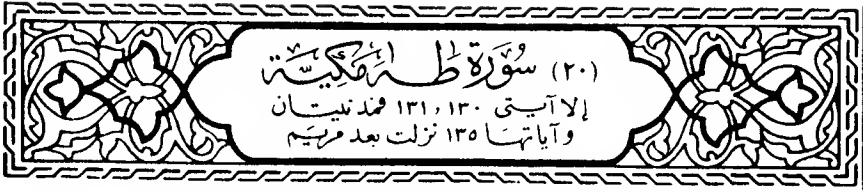 (٢٠) سُورَة طَه مَكيَّة
إلا آيتى ١٣٠ ، ١٣١ فمدنيتان
وآياتها ١٣٥ نزلت بعد مريم